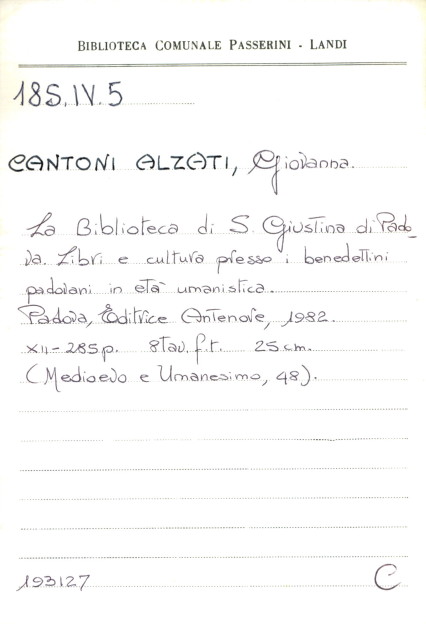 BIBLIOTECA COMUNALE PASSERINI - LANDI
18S.IV.5
CANTONI ALZATI, Giovanna.
La Biblioteca di S. Giustina di Pado_
va. Libri e cultura presso i benedettini
padovani in età umanistica.
Padova, Editrice Antenore, 1982.
XII-285p. 8tav.f.t. 25cm.
(Medioevo e Umanesimo, 48).
193127
C